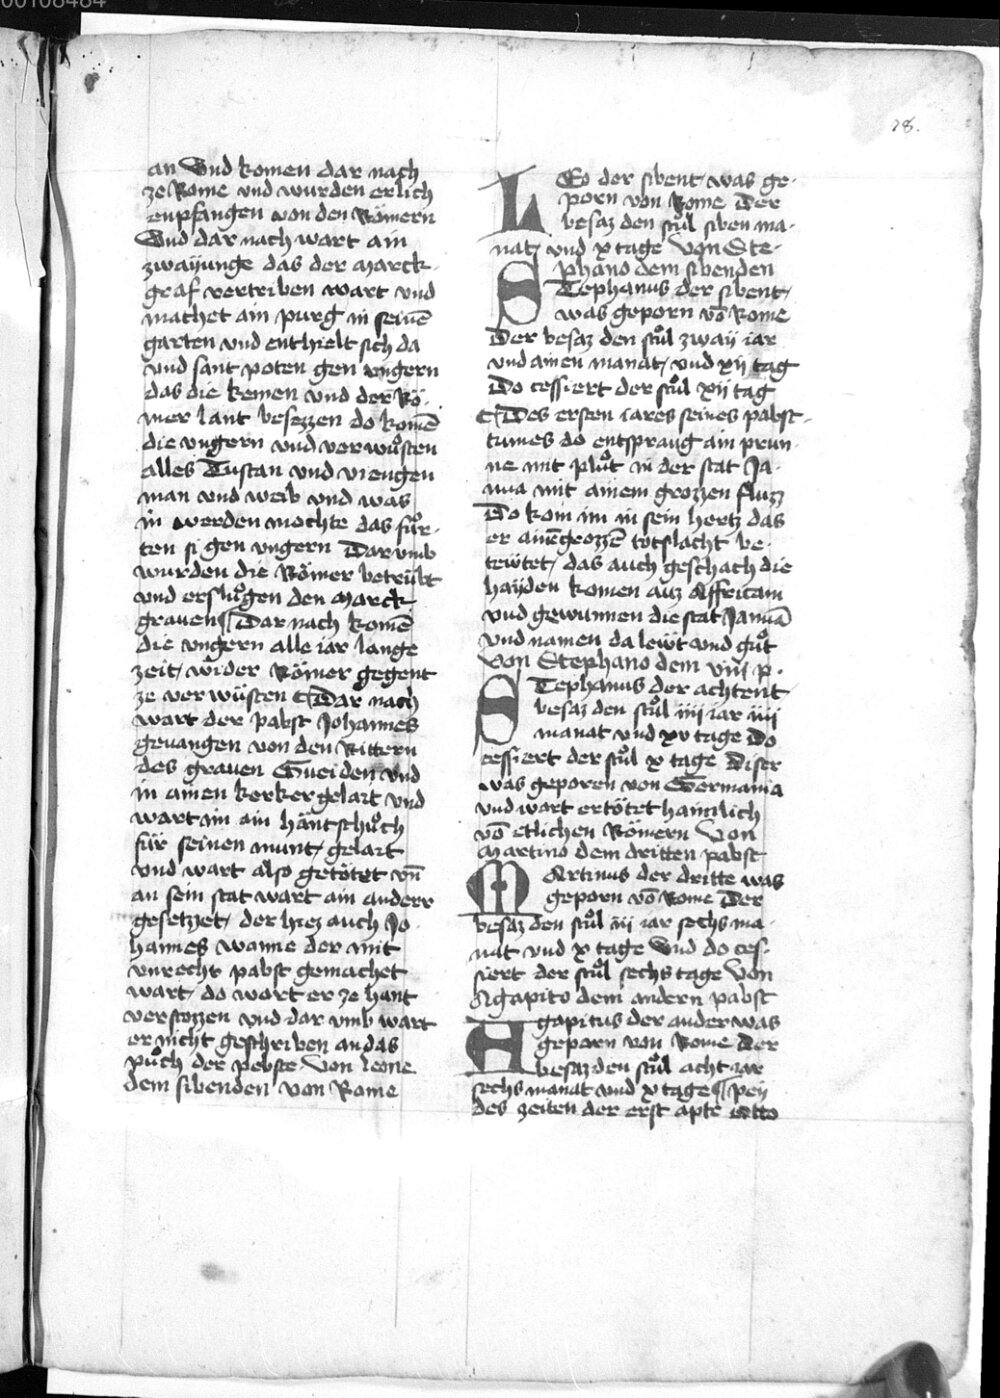 00108484
78.
an Vnd komen dar nach
ze Rome vnd wurden erlich
enpfangen von den Römern
Vnd dar nach wart ain
zwaÿunge das der marck-
graf vertriben wart vnd
machet ain purg in seinē
garten vnd enthielt sich da
vnd sant poten gen vngern
das die kemen vnd der Rö-
mer lant besezzen do komē
die vngern vnd verwuͦsten
alles Tuscan vnd viengen
man vnd weib vnd was
in werden mochte das fuͦr-
ten si gen vngern Dar vmb
wurden die Römer betrübt
vnd ersluͦgen den marck
grauen ¶ Dar nach komē
die vngern alle iar lange
zeit wider Römer gegent
ze verwüsten ¶ Dar nach
wart der pabst Johannes
geuangen von den Rittern
des grauen Gueiden vnd
in ainen kerker gelait vnd
wart im ain häntschuͦch
für seinen munt gelait
vnd wart also getötet vn̄
an sein stat wart ain anderr
gesetzet der hiez auch Jo-
hannes wanne der mit
vnrecht pabst gemachet
wart do wart er ze hant
verstozzen vnd dar vmb wart
er nicht geschriben an das
puͦch der pebste Von leone
dem sibenden von Rome
LEo der sibent was ge-
porn von Rome Der
besaz den stuͦl siben ma-
nat vnd x tage Von Ste-
phano dem sibenden
STephanus der sibent
was geporn vō Rome
Der besaz den stuͦl zwaÿ iar
vnd ainen manat vnd xij tag
Do cessiert der stuͦl xij tag
¶ Des ersten iares seines pabst-
tumes do entsprang ain prun-
ne mit pluͦt in der stat Ja-
nua mit ainem grozzen fluzz
Do kom im in sein hertz das
er ainē grozzē totslacht be-
tewtet das auch geschach die
haÿden komen auz Affricam
vnd gewunnen die stat Januā
vnd namen da lewt vnd guͦt
Von Stephano dem viij p.
STephanus der achtent
besaz den stuͦl iiij iar iiij
manat vnd xv tage Do
cessiert der stuͦl x tage Diser
was geporen von Germania
vnd wart ertötet haimlich
vō etlichen Römern Von
Martino dem dritten pabst
MArtinus der dritte was
geporn vō Rome Der
besaz den stuͦl iij iar sechs ma-
nat vnd x tage Vnd do ces-
siert der stuͦl sechs tage Von
Agapito dem andern pabst
Agapitus der ander was
geporn von Rome Der
besaz den stuͦl acht iar
sechs manat vnd x tage ¶ Peÿ
des zeiten der erst apte otto